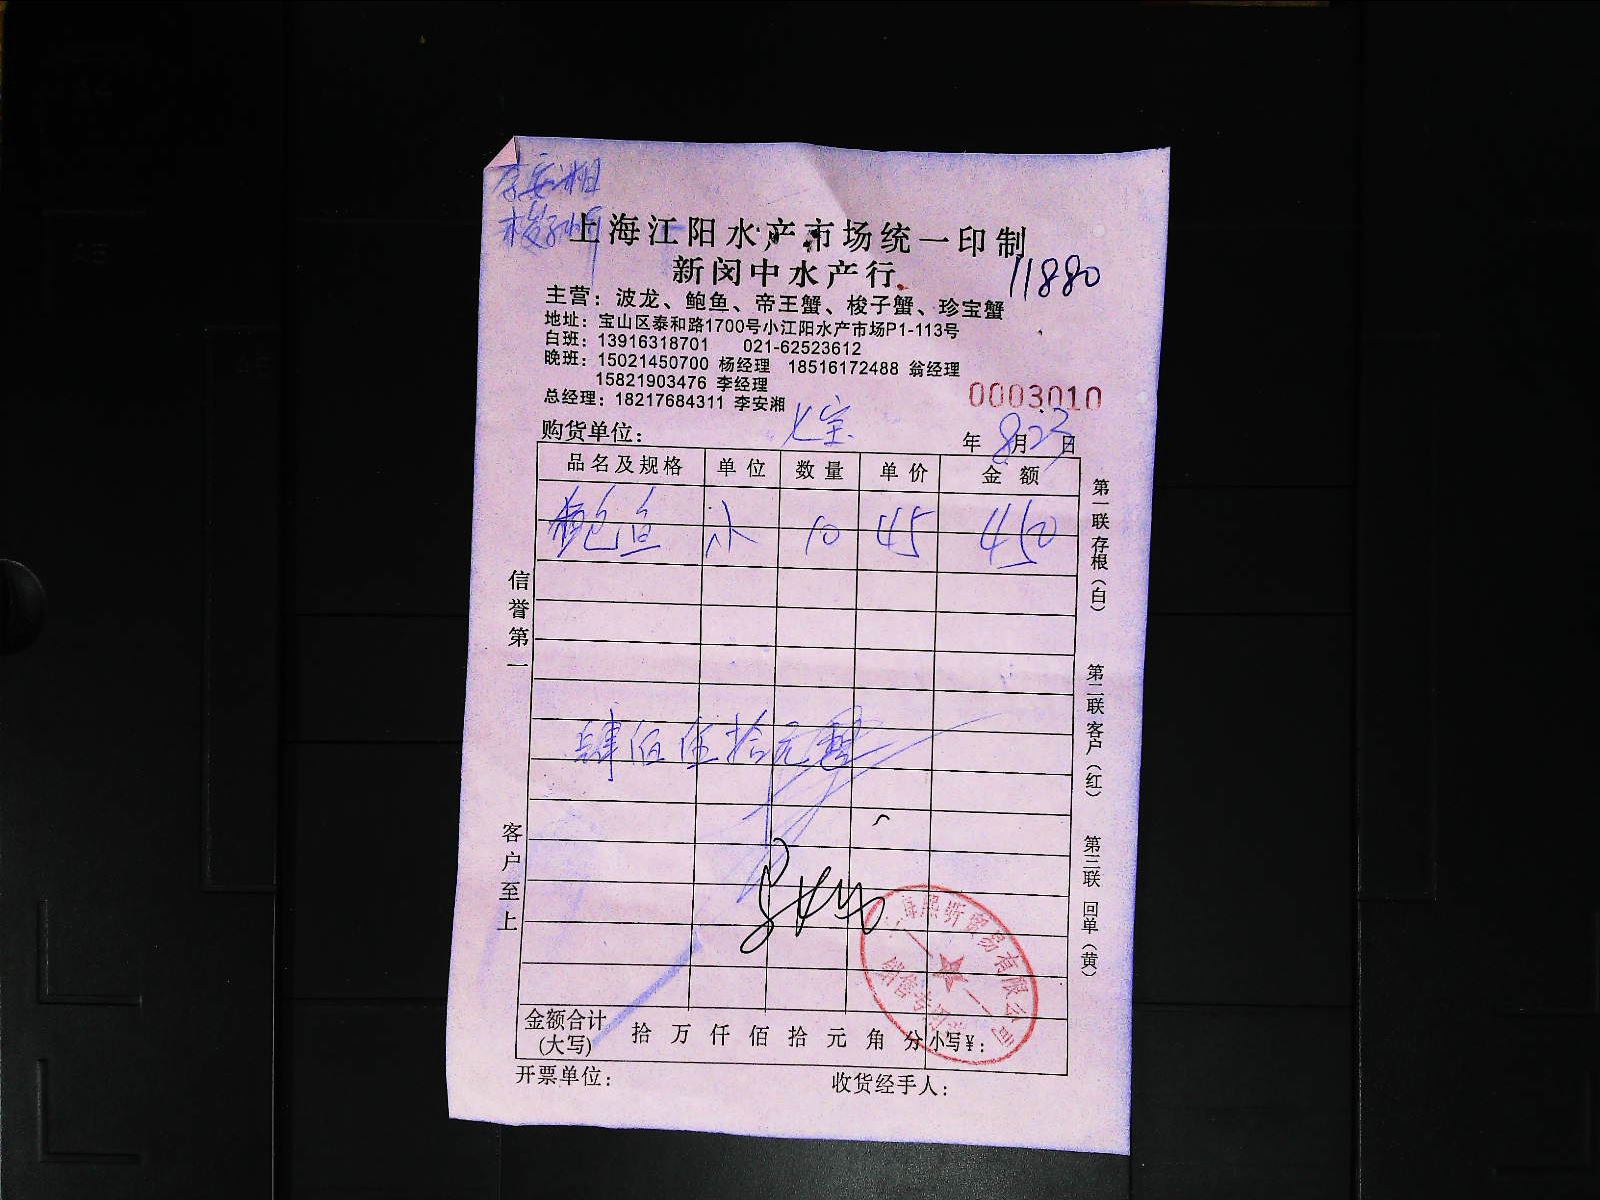 李安湘
梭子蟹
上海江阳水产市场统一印制
新闵中水产行
11880
主营：波龙、鲍鱼、帝王蟹、梭子蟹、珍宝蟹
地址：宝山区泰和路1700号小江阳水产市场P1-113号
白班：13916318701 021-62523612
晚班：15021450700 杨经理 18516172488 翁经理
15821903476 李经理
总经理：18217684311 李安湘
0003010
购货单位：七宝 年8月23日
品名及规格 单位 数量 单价 金额
鲍鱼 小 10 45 450
肆佰伍拾元整
信誉第一
客户至上
第一联 存根（白）
第二联 客户（红）
第三联 回单（黄）
上海熙昕贸易有限公司
销售专用章
金额合计(大写) 拾 万 仟 佰 拾 元 角 分 小写¥：
开票单位： 收货经手人：